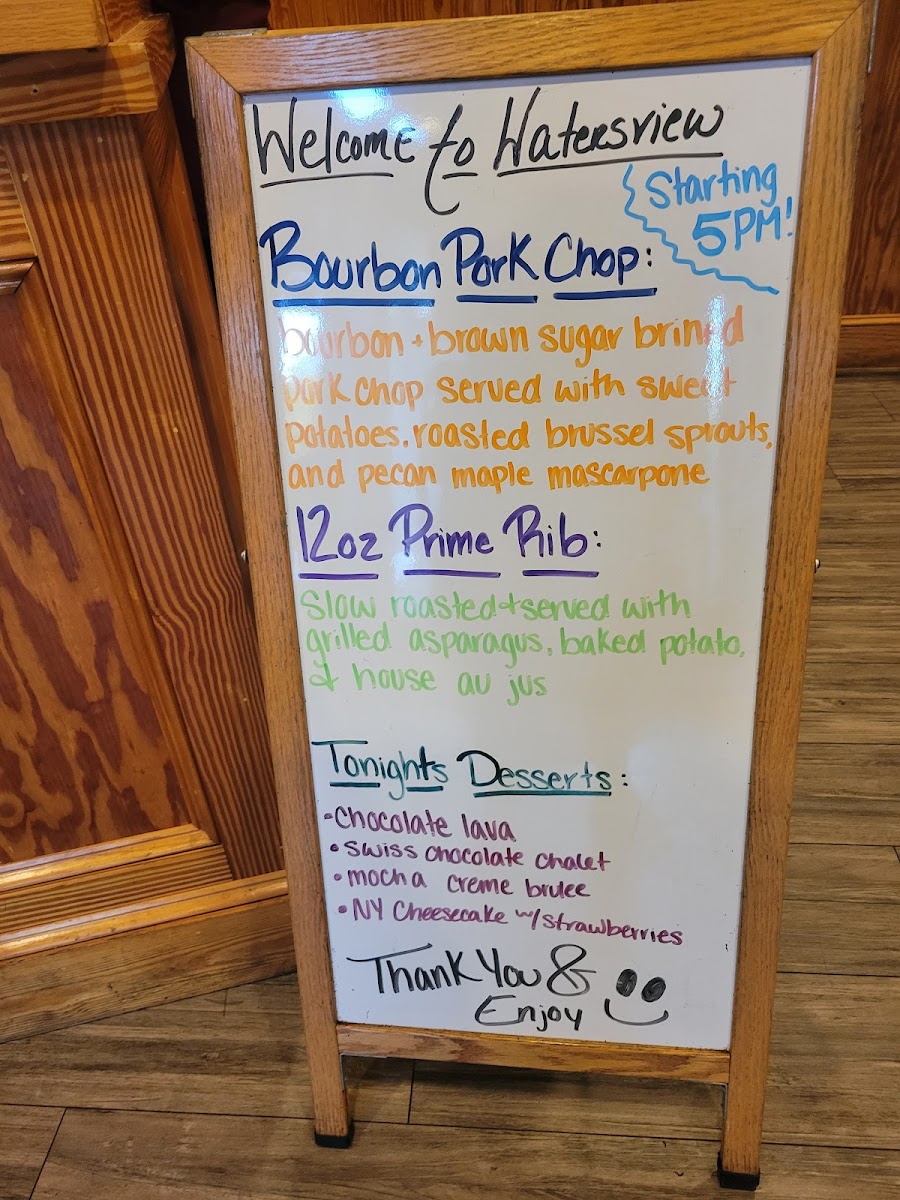 Welcome to Watersview
Starting
5PM!
Bourbon Pork Chop:
bourbon + brown sugar brined
pork chop served with sweet
potatoes, roasted brussel sprouts,
and pecan maple mascarpone
12oz Prime Rib:
slow roasted + served with
grilled asparagus, baked potato,
& house au jus
Tonights Desserts:
-chocolate lava
• swiss chocolate chalet
• mocha creme brulee
• NY Cheesecake w/strawberries
Thank You &
Enjoy